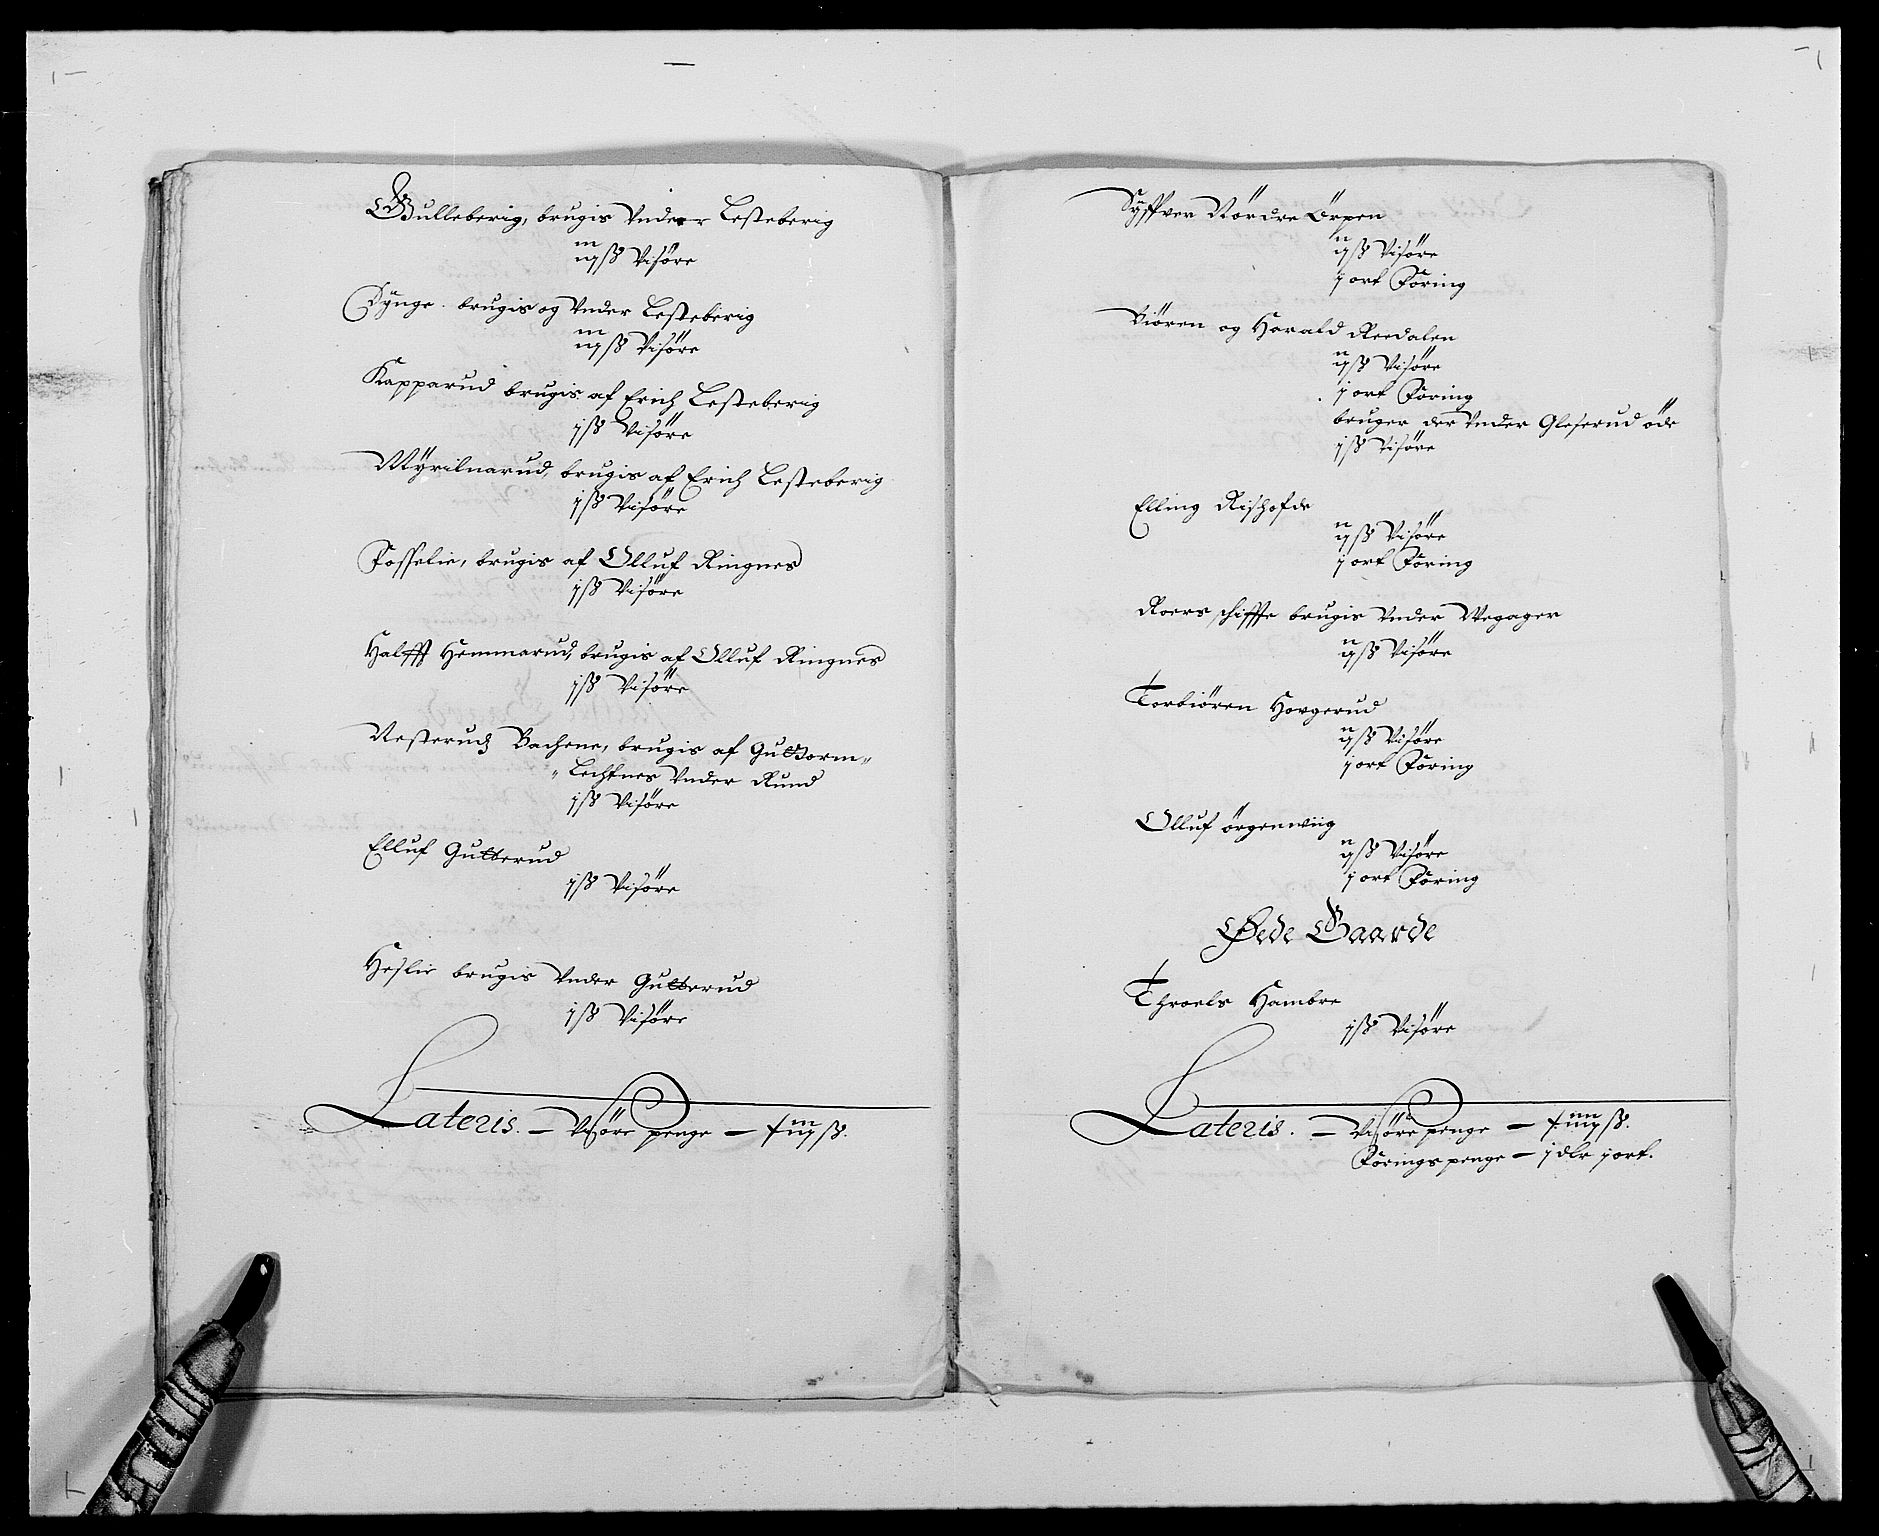 Gulleberig, brugis Vnder Lesteberig
iij ß Visöre
Lÿnge brugis og Vnder Lesteberig
iij ß Visöre
Kapparud brugis af Erich Lesteberig
j ß Visöre
Mÿrilnarud, brugis af Erich Lesteberig
j ß Visöre
Fosselie, brugis af Olluf Ringnes
j ß Visöre
Halff Hemmarud, brugis af Olluf Ringnes
j ß Visöre
Vesterud Bachene, brugis af Guttorm„
„Lechtnes Vnder Rund
j ß Visöre
Elluf Gutterud
j ß Visöre
Heslie brugis Vnder Gutterud
j ß Visöre
Lateris. – Visöre penge – ß.
Sÿffver Nördre Örpen
ij ß Visöre
j ort Föring
Biören og Harald Reedalen
ij ß Visöre
j ort Föring
bruger der Vnder Gleserud öde
j ß Visöre
Elling Rishofde
ij ß Visöre
j ort Föring
Roers schiffte brugis Vnder Wegager
ij ß Visöre
Torbiören Hovgerud
ij ß Visöre
j ort Föring
Olluf örgenwiig
ij ß Visöre
j ort Föring
Øede Gaarde
Throels Hambre
j ß Visöre
Lateris. – Visöre penge – ß.
Föringspenge – j dlr j ort.